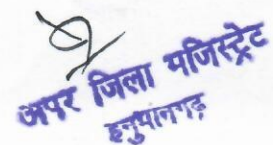 अपर जिला मजिस्ट्रेट
हनुमानगढ़